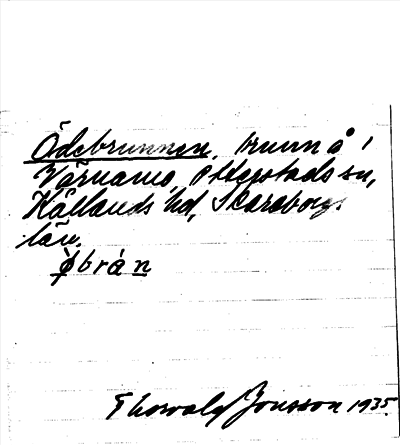 Ödebrunnen, brunn å
Värnamo, Otterstads sn,
Kållands hd, Skaraborgs
län.
ø̀brán
Thorvald Jonsson 1935.